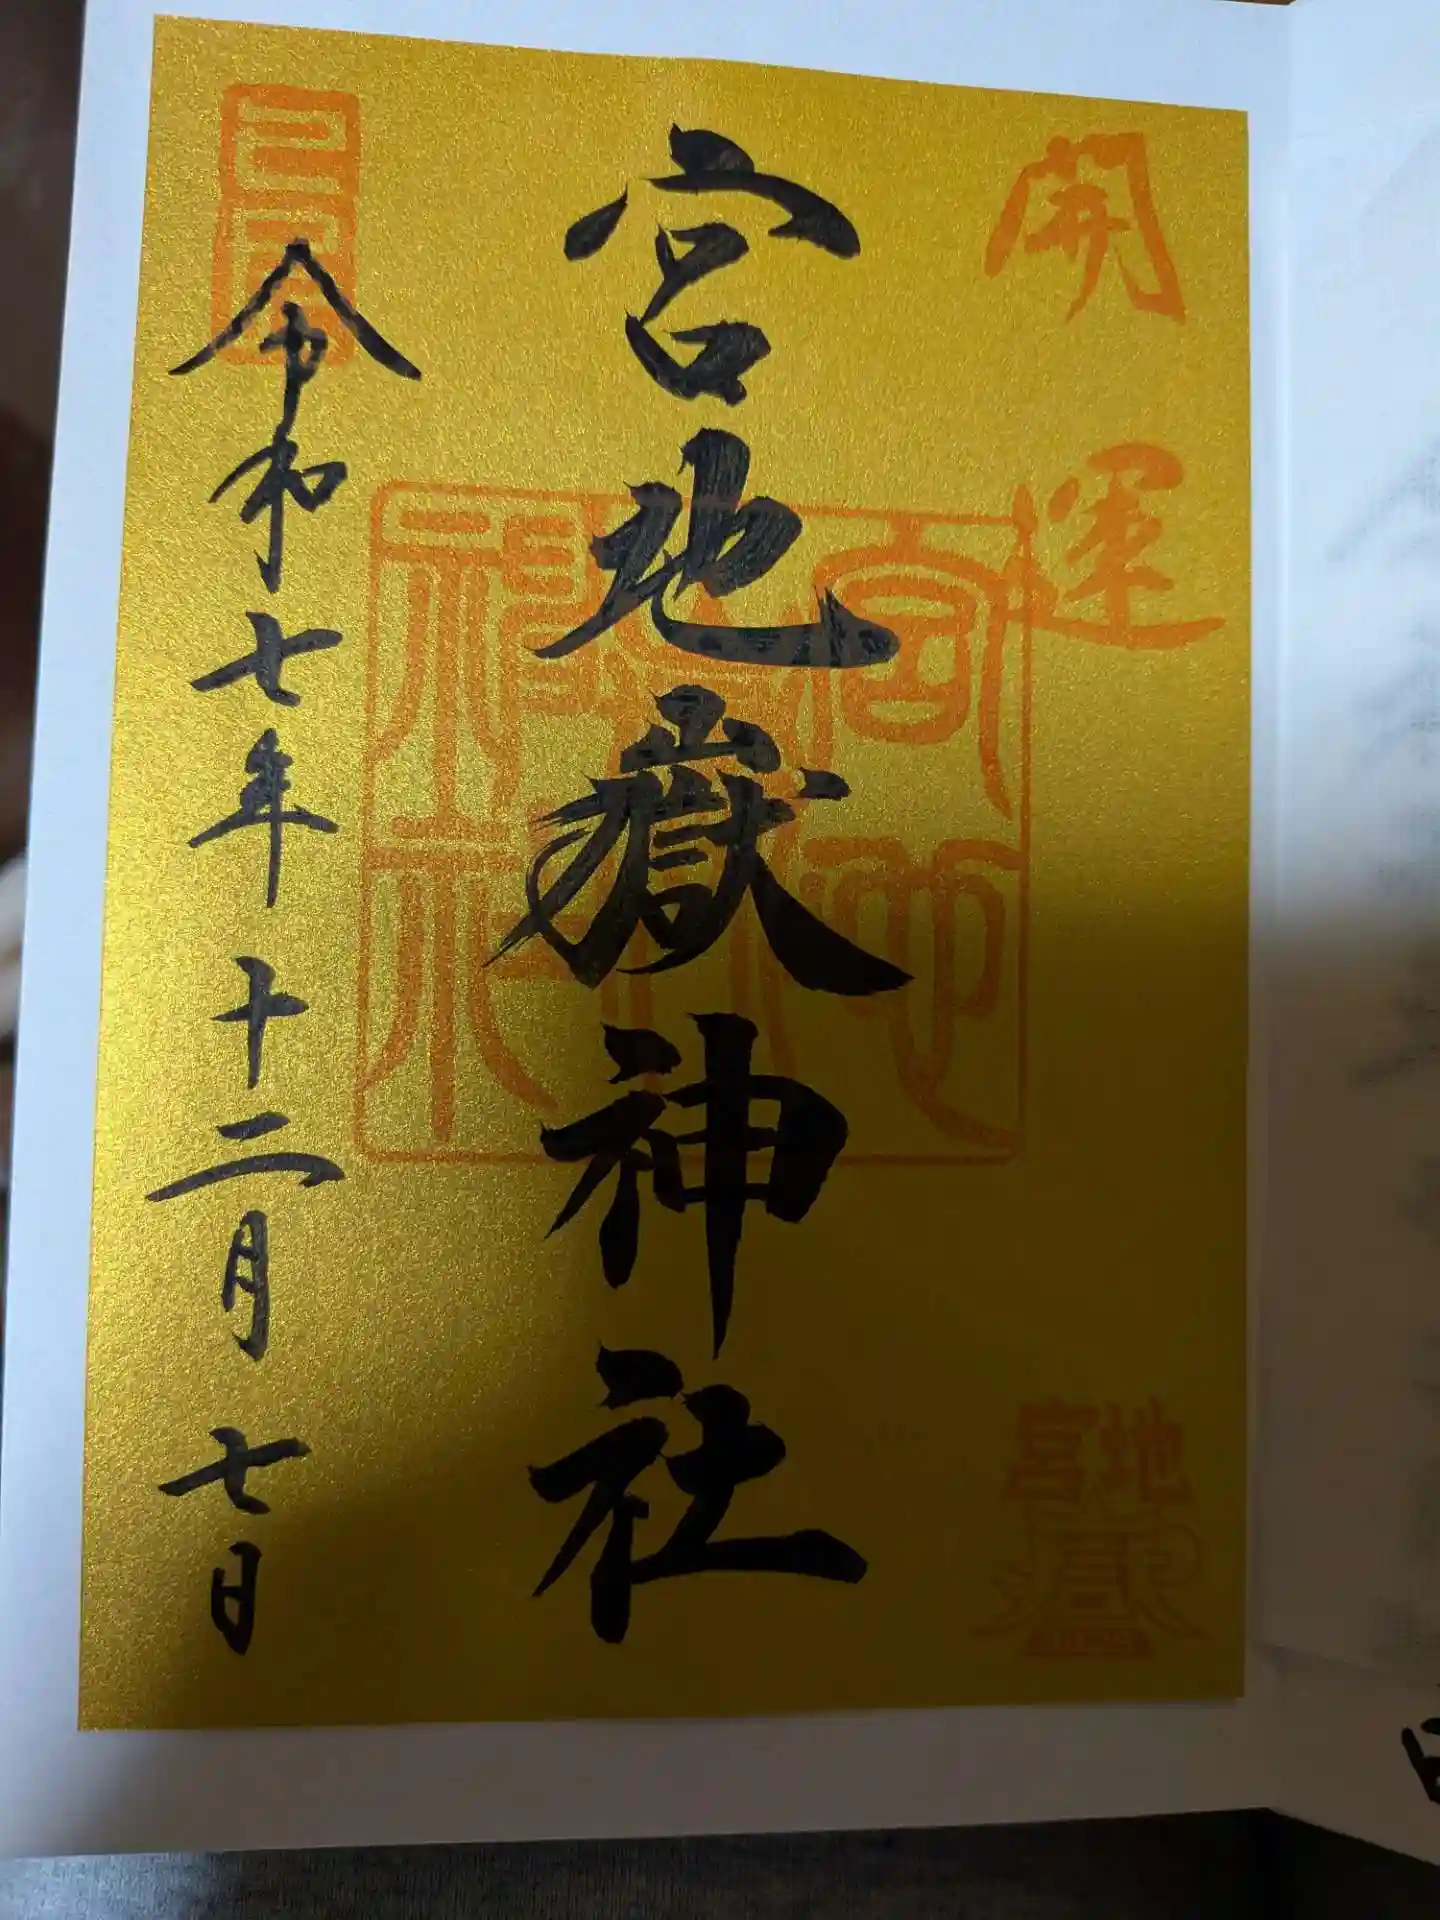 開運
宮地嶽神社
宮地嶽神社
令和七年十二月七日
宮地
嶽